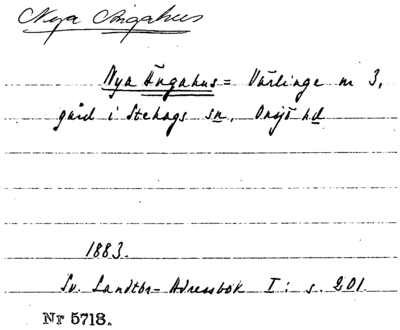 Nya Ängahus
Nya Ängahus = Värlinge nr 3,
gård i Stehags sn, Onsjö hd
1883.
Sv. Landtbr-Adressbok I: s. 201.
Nr 5718.